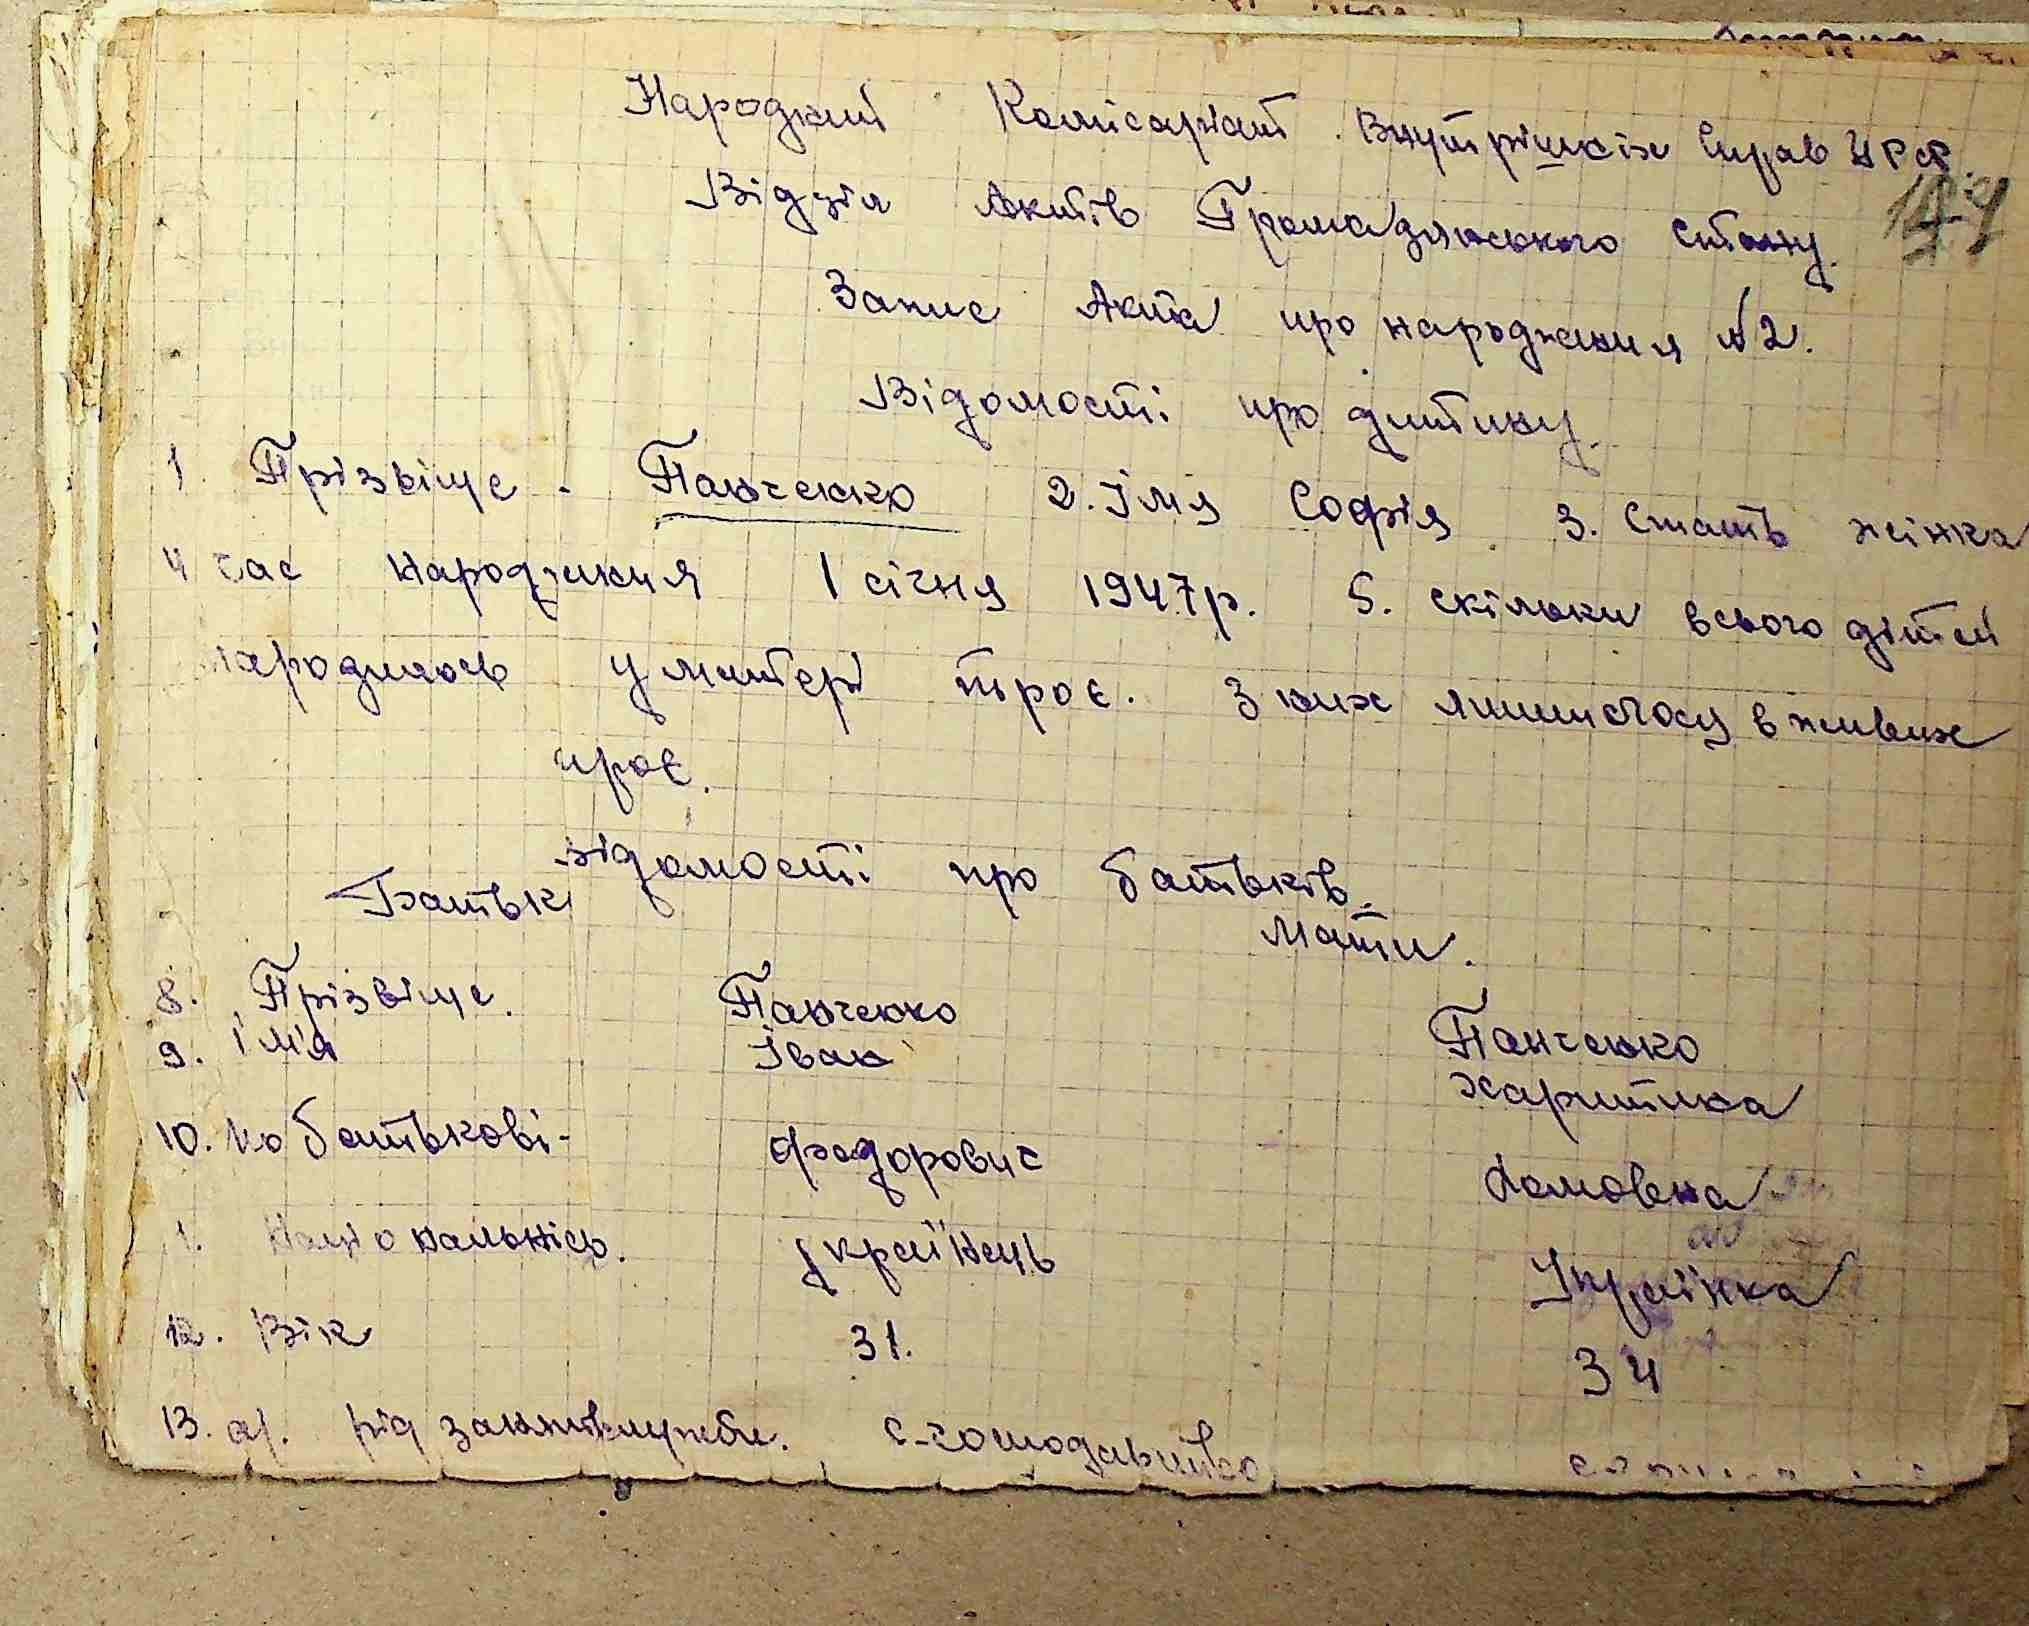 Народний Комісаріат Внутрішніх Справ УРСР.
Відділ Актів Громадянського Стану.
Запис Акта про народження №2.
Відомості про дитину.
1. Прізвіще - Панченко 2. Імя Софія 3. Стать жінка
4 час народження 1 січня 1947 р. 5. скільки всього дітей
народилось у матері троє. З них лишилось в живих
троє.
відомості про батьків.
Батьк
Мати.
8. Прізвіще. Панченко Панченко
9. Ім'я Іван Харитина
10. По батькові - Федорович Домовна
1. Національнісь. українець Українка
12. Вік 31. 34
13. а). рід служби.